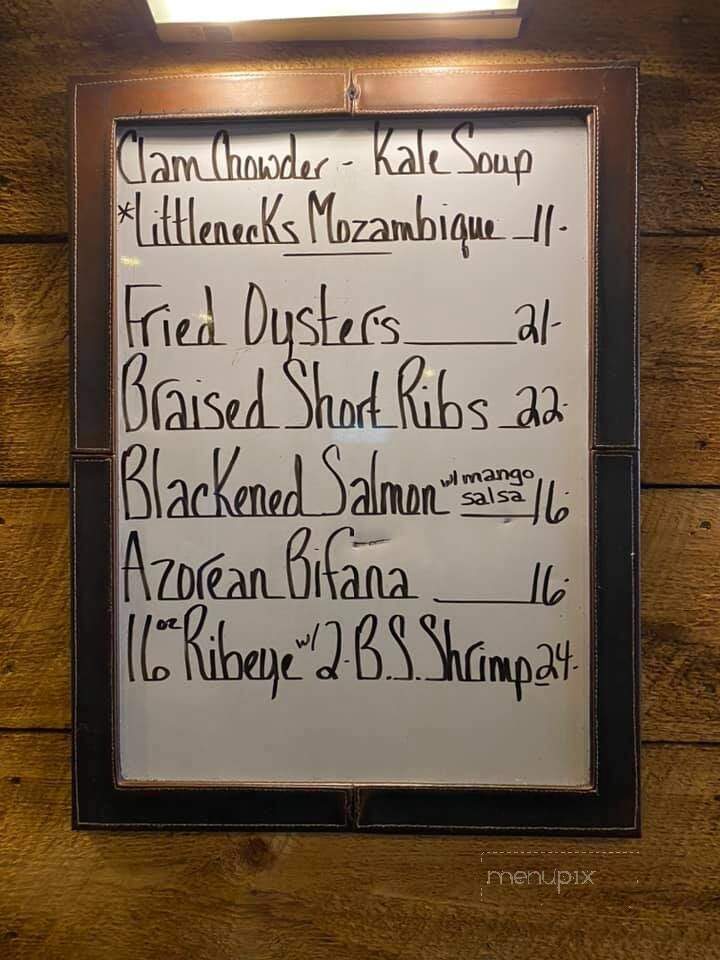 Clam Chowder - Kale Soup
*Littlenecks Mozambique 11-
Fried Oysters 21-
Braised Short Ribs 22-
Blackened Salmon w/ mango salsa 16
Azorean Bifana 16-
16oz Ribeye w/ 2 B.S. Shrimp 24-
menupix